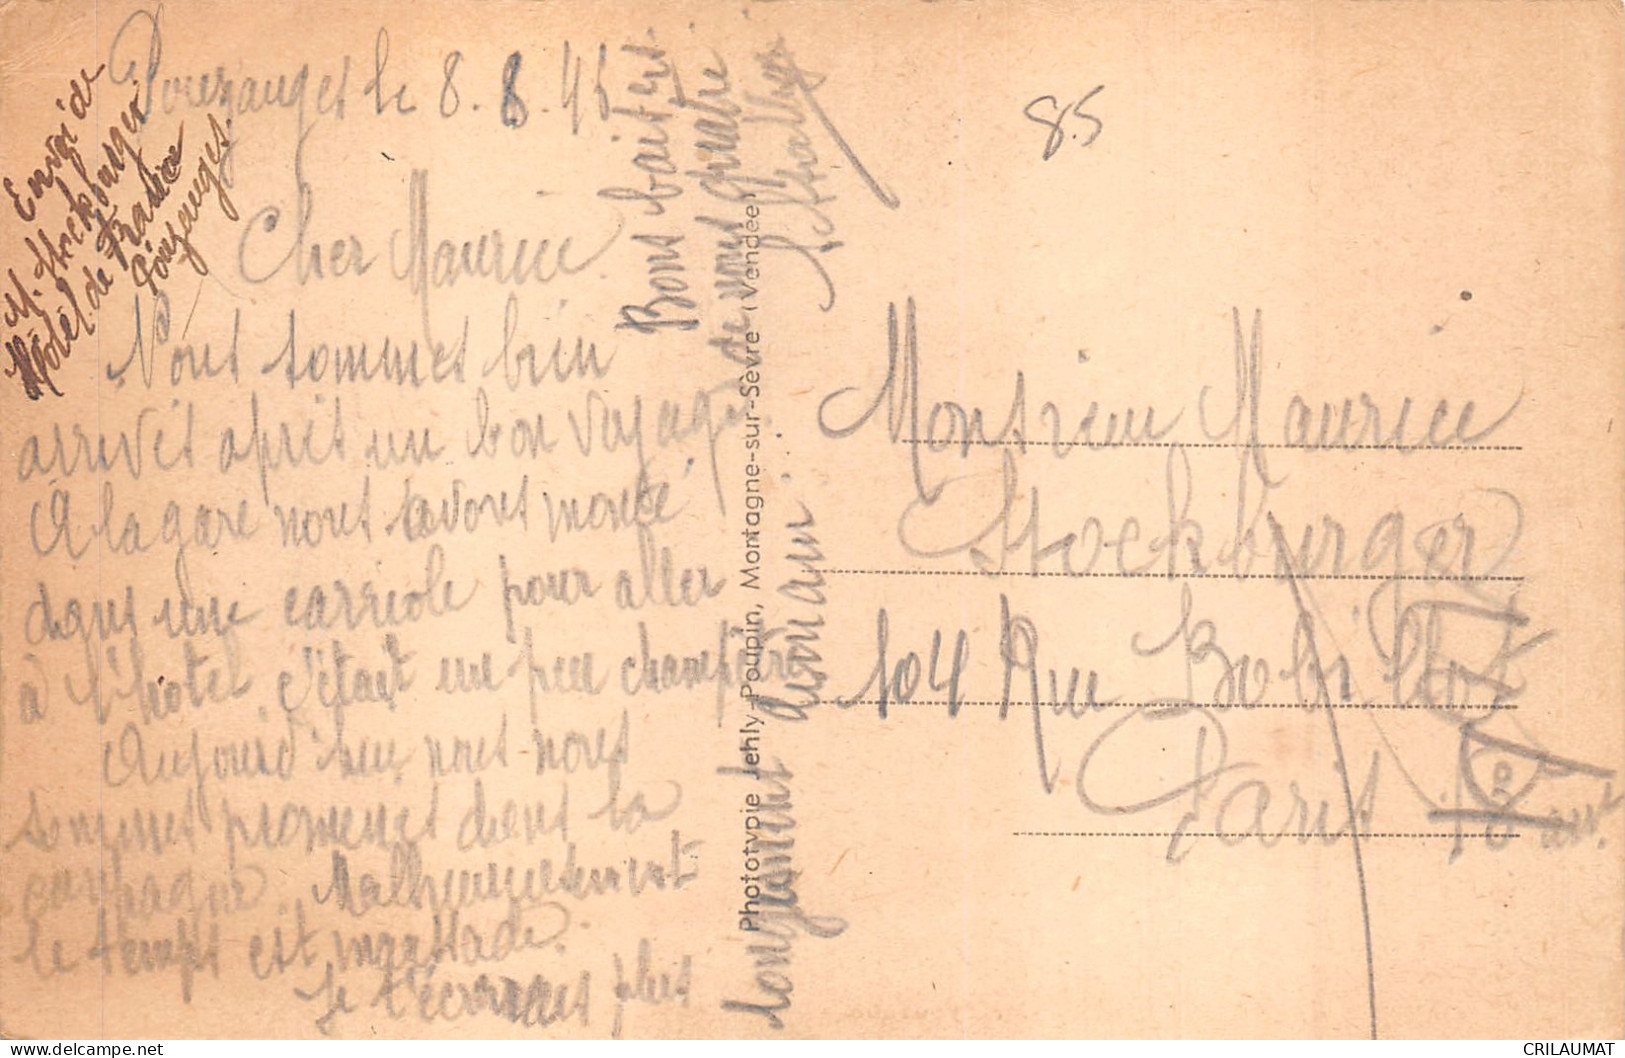 Envoi de
M. Stockburger
Hôtel de France
Pouzauges
Pouzauges le 8.8.45
Cher Maurice
Nous sommes bien
arrivés après un bon voyage
A la gare nous avons monté
dans une carriole pour aller
à l'hôtel. c'était un peu champêtre
Aujourd'hui nous nous
sommes promenés dans la
campagne. Malheureusement
le temps est maussade.
Je t'écrirais plus
longuement demain.
Bons baisers
de nous quatre
Phototypie Jehly-Poupin, Montagne-sur-Sèvre (Vendée)
85
Monsieur Maurice
Stockburger
104 Rue Bobillot
Paris
CRILAUMAT